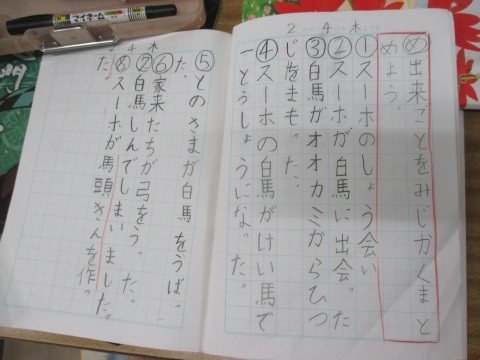 2 4 木
㋱出来ごとをみじかくまと
めよう。
①スーホのしょう会い
②スーホが白馬に出会った
③白馬がオオカミからひつ
じをまもった。
④スーホの白馬がけい馬で
一とうしょうになった。
2 4 木
⑤とのさまが白馬をうばっ
た。
⑥家来たちが弓をうった。
⑦白馬しんでしまいました。
⑧スーホが馬頭きんを作っ
た。
マイネーム